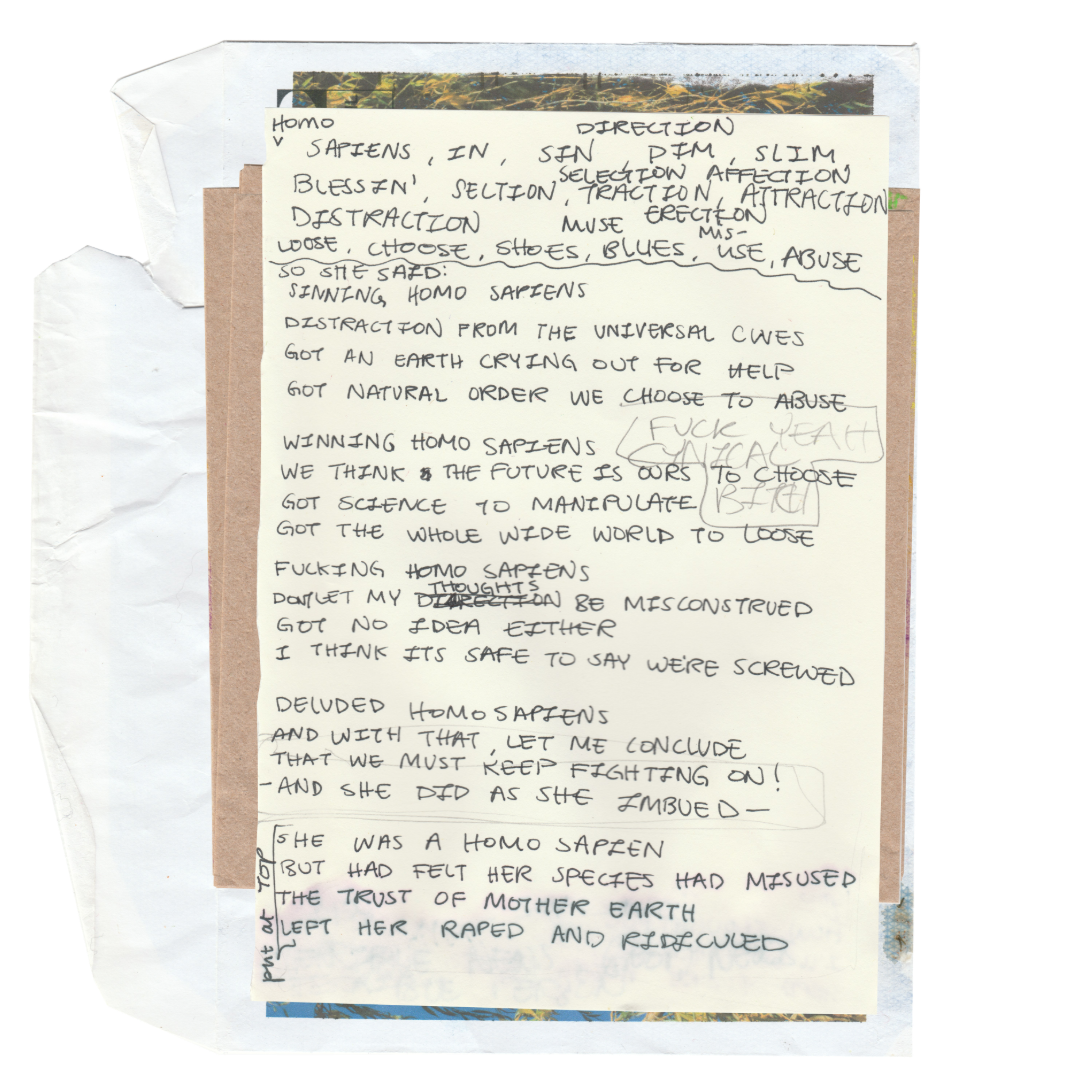 HOMO
DIRECTION
SAPIENS, IN, SIN DIM, SLIM
SELECTION AFFECTION
BLESSIN', SELTION, TRACTION, ATTRACTION
DISTRACTION MUSE ERECTION
MIS-
LOOSE, CHOOSE, SHOES, BLUES, USE, ABUSE
SO SHE SAID:
SINNING HOMO SAPIENS
DISTRACTION FROM THE UNIVERSAL CWES
GOT AN EARTH CRYING OUT FOR HELP
GOT NATURAL ORDER WE CHOOSE TO ABUSE
FUCK YEAH
CYNICAL
BITCH
WINNING HOMO SAPIENS
WE THINK THE FUTURE IS OURS TO CHOOSE
GOT SCIENCE TO MANIPULATE
GOT THE WHOLE WIDE WORLD TO LOOSE
FUCKING HOMO SAPIENS
THOUGHTS
DONT LET MY DIRECTION BE MISCONSTRUED
GOT NO IDEA EITHER
I THINK ITS SAFE TO SAY WE'RE SCREWED
DELUDED HOMO SAPIENS
AND WITH THAT, LET ME CONCLUDE
THAT WE MUST KEEP FIGHTING ON!
-AND SHE DID AS SHE IMBUED-
put at TOP
SHE WAS A HOMO SAPIEN
BUT HAD FELT HER SPECIES HAD MISUSED
THE TRUST OF MOTHER EARTH
LEFT HER RAPED AND RIDICULED